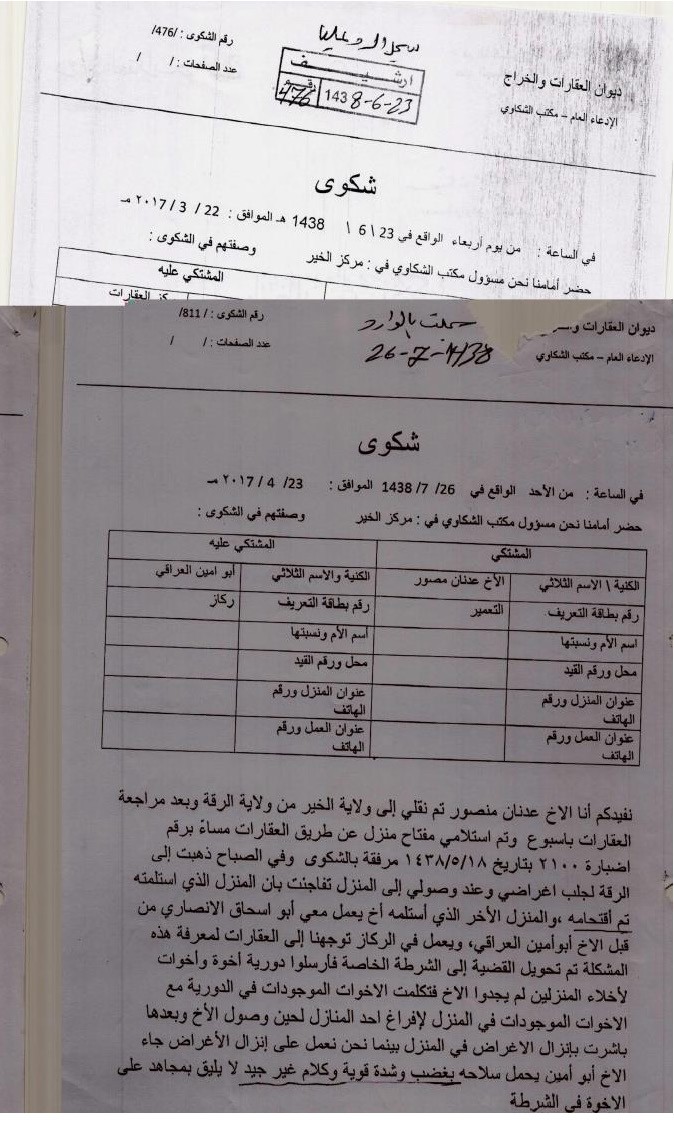 رقم الشكوى : /476/
عدد الصفحات : / /
ارشيف
رقم
476
1438-6-23
ديوان العقارات والخراج
الإدعاء العام – مكتب الشكاوي
شكوى
في الساعة : من يوم أربعاء الواقع في 23\ 6 \ 1438 هـ الموافق : 22 / 3 / ٢٠١٧ مـ
حضر أمامنا نحن مسؤول مكتب الشكاوي في : مركز الخير وصفتهم في الشكوى :
المشتكي عليه
العقارات
ديوان العقارات
الإدعاء العام – مكتب الشكاوي
سجلت بالوارد
26-7-1438
رقم الشكوى : / 811/
عدد الصفحات : / /
شكوى
في الساعة : من الأحد الواقع في 26/ 7/ 1438 الموافق : 23/ 4 / ٢٠١٧ مـ
حضر أمامنا نحن مسؤول مكتب الشكاوي في : مركز الخير وصفتهم في الشكوى :
المشتكي المشتكي عليه
الكنية \ الاسم الثلاثي الأخ عدنان مصور الكنية والاسم الثلاثي أبو امين العراقي
رقم بطاقة التعريف التعمير رقم بطاقة التعريف ركاز
اسم الأم ونسبتها أسم الأم ونسبتها
محل ورقم القيد محل ورقم القيد
عنوان المنزل ورقم الهاتف عنوان المنزل ورقم الهاتف
عنوان العمل ورقم الهاتف عنوان العمل ورقم الهاتف
نفيدكم أنا الاخ عدنان منصور تم نقلي إلى ولاية الخير من ولاية الرقة وبعد مراجعة
العقارات باسبوع وتم استلامي مفتاح منزل عن طريق العقارات مساءً برقم
اضبارة ٢١٠٠ بتاريخ ١٤٣٨/٥/١٨ مرفقة بالشكوى وفي الصباح ذهبت إلى
الرقة لجلب اغراضي وعند وصولي إلى المنزل تفاجئت بان المنزل الذي استلمته
تم أقتحامه ،والمنزل الأخر الذي أستلمه أخ يعمل معي أبو اسحاق الانصاري من
قبل الاخ أبوأمين العراقي، ويعمل في الركاز توجهنا إلى العقارات لمعرفة هذه
المشكلة تم تحويل القضية إلى الشرطة الخاصة فأرسلوا دورية أخوة وأخوات
لأخلاء المنزلين لم يجدوا الاخ فتكلمت الاخوات الموجودات في الدورية مع
الاخوات الموجودات في المنزل لإفراغ احد المنازل لحين وصول الأخ وبعدها
باشرت بإنزال الاغراض في المنزل بينما نحن نعمل على إنزال الأغراض جاء
الاخ أبو أمين يحمل سلاحه بغضب وشدة قوية وكلام غير جيد لا يليق بمجاهد على
الاخوة في الشرطة